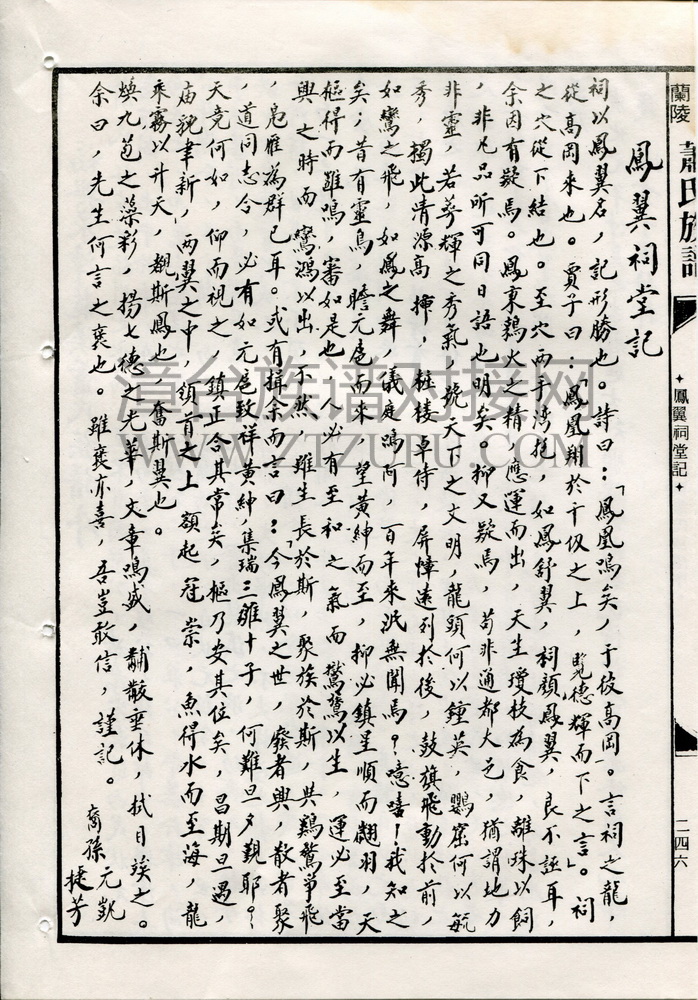 蘭陵 蕭氏族譜
鳳翼祠堂記
二四六
鳳翼祠堂記
祠以鳳翼名，記形勝也。詩曰：「鳳凰鳴矣，于彼高岡」。言祠之龍，
從高岡來也。賈子曰：「鳳凰翔於千仭之上，覽德輝而下之言」。祠
之穴從下結也。至穴兩手灣抱，如鳳舒翼，祠顏鳳翼，良不誣耳，
余因有疑焉。鳳東鶉火之精，應運而出，天生瓊枝為食，離珠以飼
，非凡品所可同日語也明矣。抑又疑焉，苟非通都大邑，猶謂地力
非靈，若萃輝之秀氣，號天下之文明，龍頭何以鍾英，鸚窟何以毓
秀，獨此清源高揷，桂棱卓侍，屏幛遠列於後，鼓旗飛動於前，
如鸞之飛，如鳳之舞，儀庭鳴阿，百年來泯無聞焉？噫嘻！我知之
矣；昔有靈鳥，瞻元扈而來，望黃紳而至，抑必鎮星順而翽羽，天
樞得而雖鳴，審如是也，人必有至和之氣而鸑鷟以生，運必至當
興之時而鸞鴻以出，不然，雖生長於斯，聚族於斯，共鷄鶩爭飛
，鳧雁為群已耳。或有揖余而言曰：「今鳳翼之世，廢者興，散者聚
，道同志合，必有如元扈致祥黃紳，集瑞三雛十子，何難旦夕觀耶？
天竟何如，仰而視之，鎮正合其常矣，樞乃安其位矣，昌期旦遇，
庙貌聿新，兩翼之中，領首之上，額起冠崇，魚得水而至海，龍
乘霧以升天，覩斯鳳也，奮斯翼也。
煥九苞之藻彩，揚七德之光華，文章鳴盛，黼黻垂休，拭目竢之。
余曰，先生何言之褒也。雖褒亦喜，吾豈敢信，謹記。
裔孫元
捷芳
漳台族谱对接网
WWW.ZTZUTU.COM